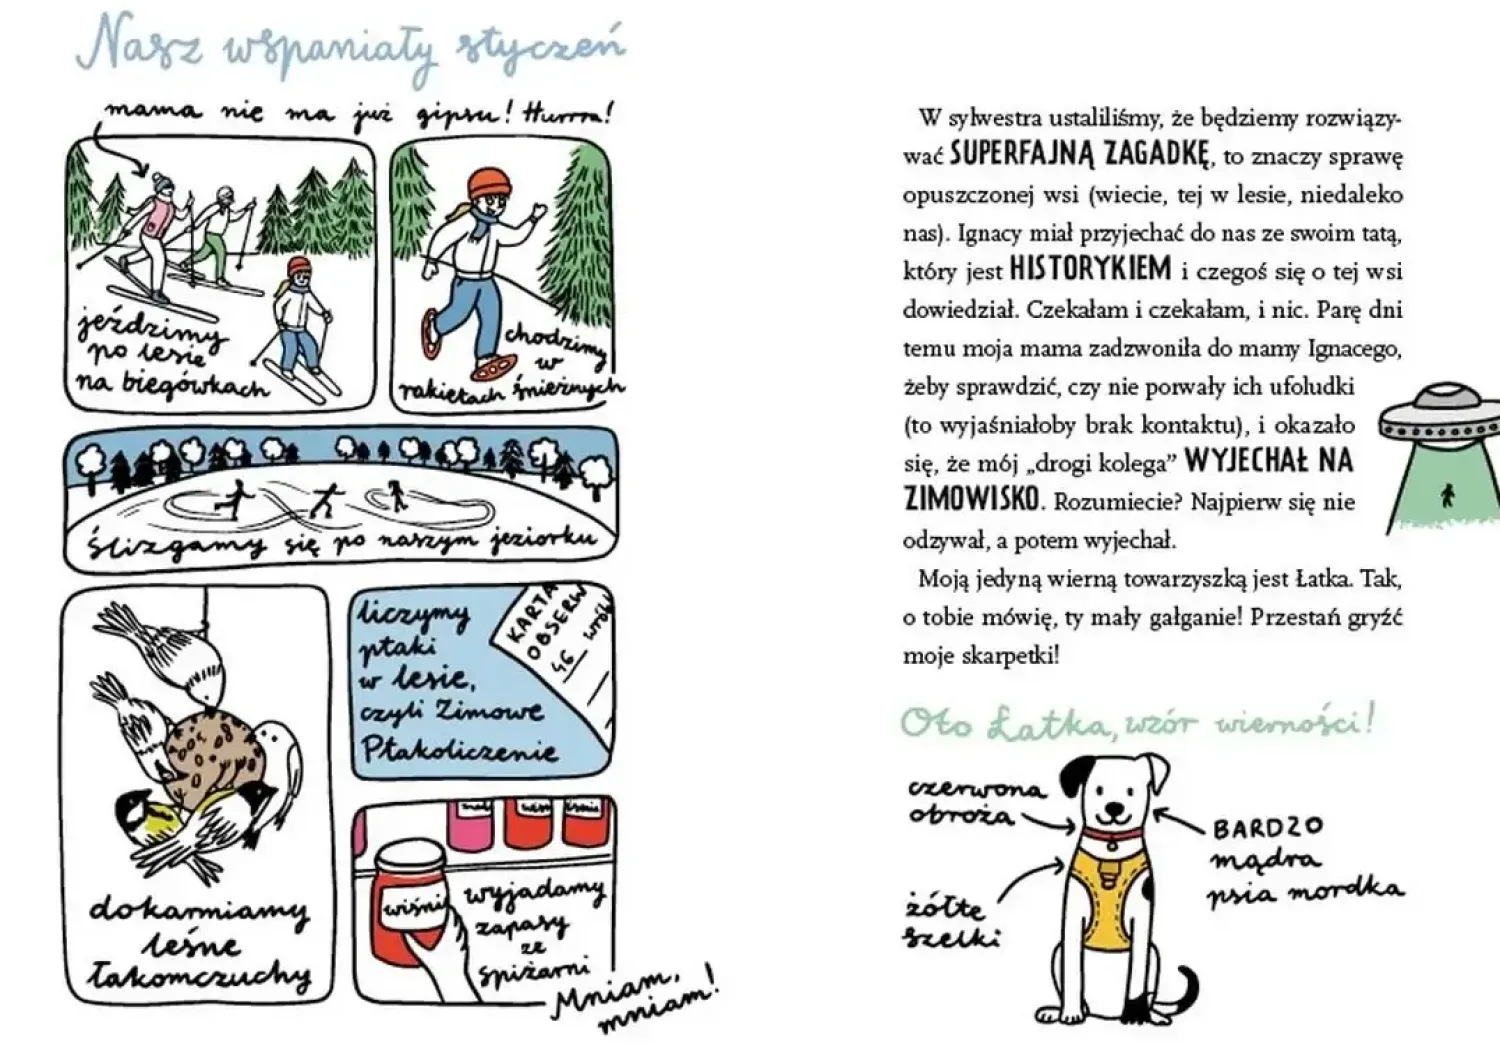 Nasz wspaniały styczeń
mama nie ma już gipsu! Hurrra!
jeździmy
po lesie
na biegówkach
chodzimy
w
rakietach śnieżnych
ślizgamy się po naszym jeziorku
dokarmiamy
leśne
łakomczuchy
liczymy
ptaki
w lesie,
czyli Zimowe
Ptakoliczenie
KARTA
OBSERW
46
wiśni
wyjadamy
zapasy
ze
spiżarni
Mniam,
mniam!
W sylwestra ustaliliśmy, że będziemy rozwiązy-
wać SUPERFAJNĄ ZAGADKĘ, to znaczy sprawę
opuszczonej wsi (wiecie, tej w lesie, niedaleko
nas). Ignacy miał przyjechać do nas ze swoim tatą,
który jest HISTORYKIEM i czegoś się o tej wsi
dowiedział. Czekałam i czekałam, i nic. Parę dni
temu moja mama zadzwoniła do mamy Ignacego,
żeby sprawdzić, czy nie porwały ich ufoludki
(to wyjaśniałoby brak kontaktu), i okazało
się, że mój „drogi kolega” WYJECHAŁ NA
ZIMOWISKO. Rozumiecie? Najpierw się nie
odzywał, a potem wyjechał.
Moją jedyną wierną towarzyszką jest Łatka. Tak,
o tobie mówię, ty mały gałganie! Przestań gryźć
moje skarpetki!
Oto Łatka, wzór wierności!
czerwona
obroża
BARDZO
mądra
psia mordka
żółte
szelki